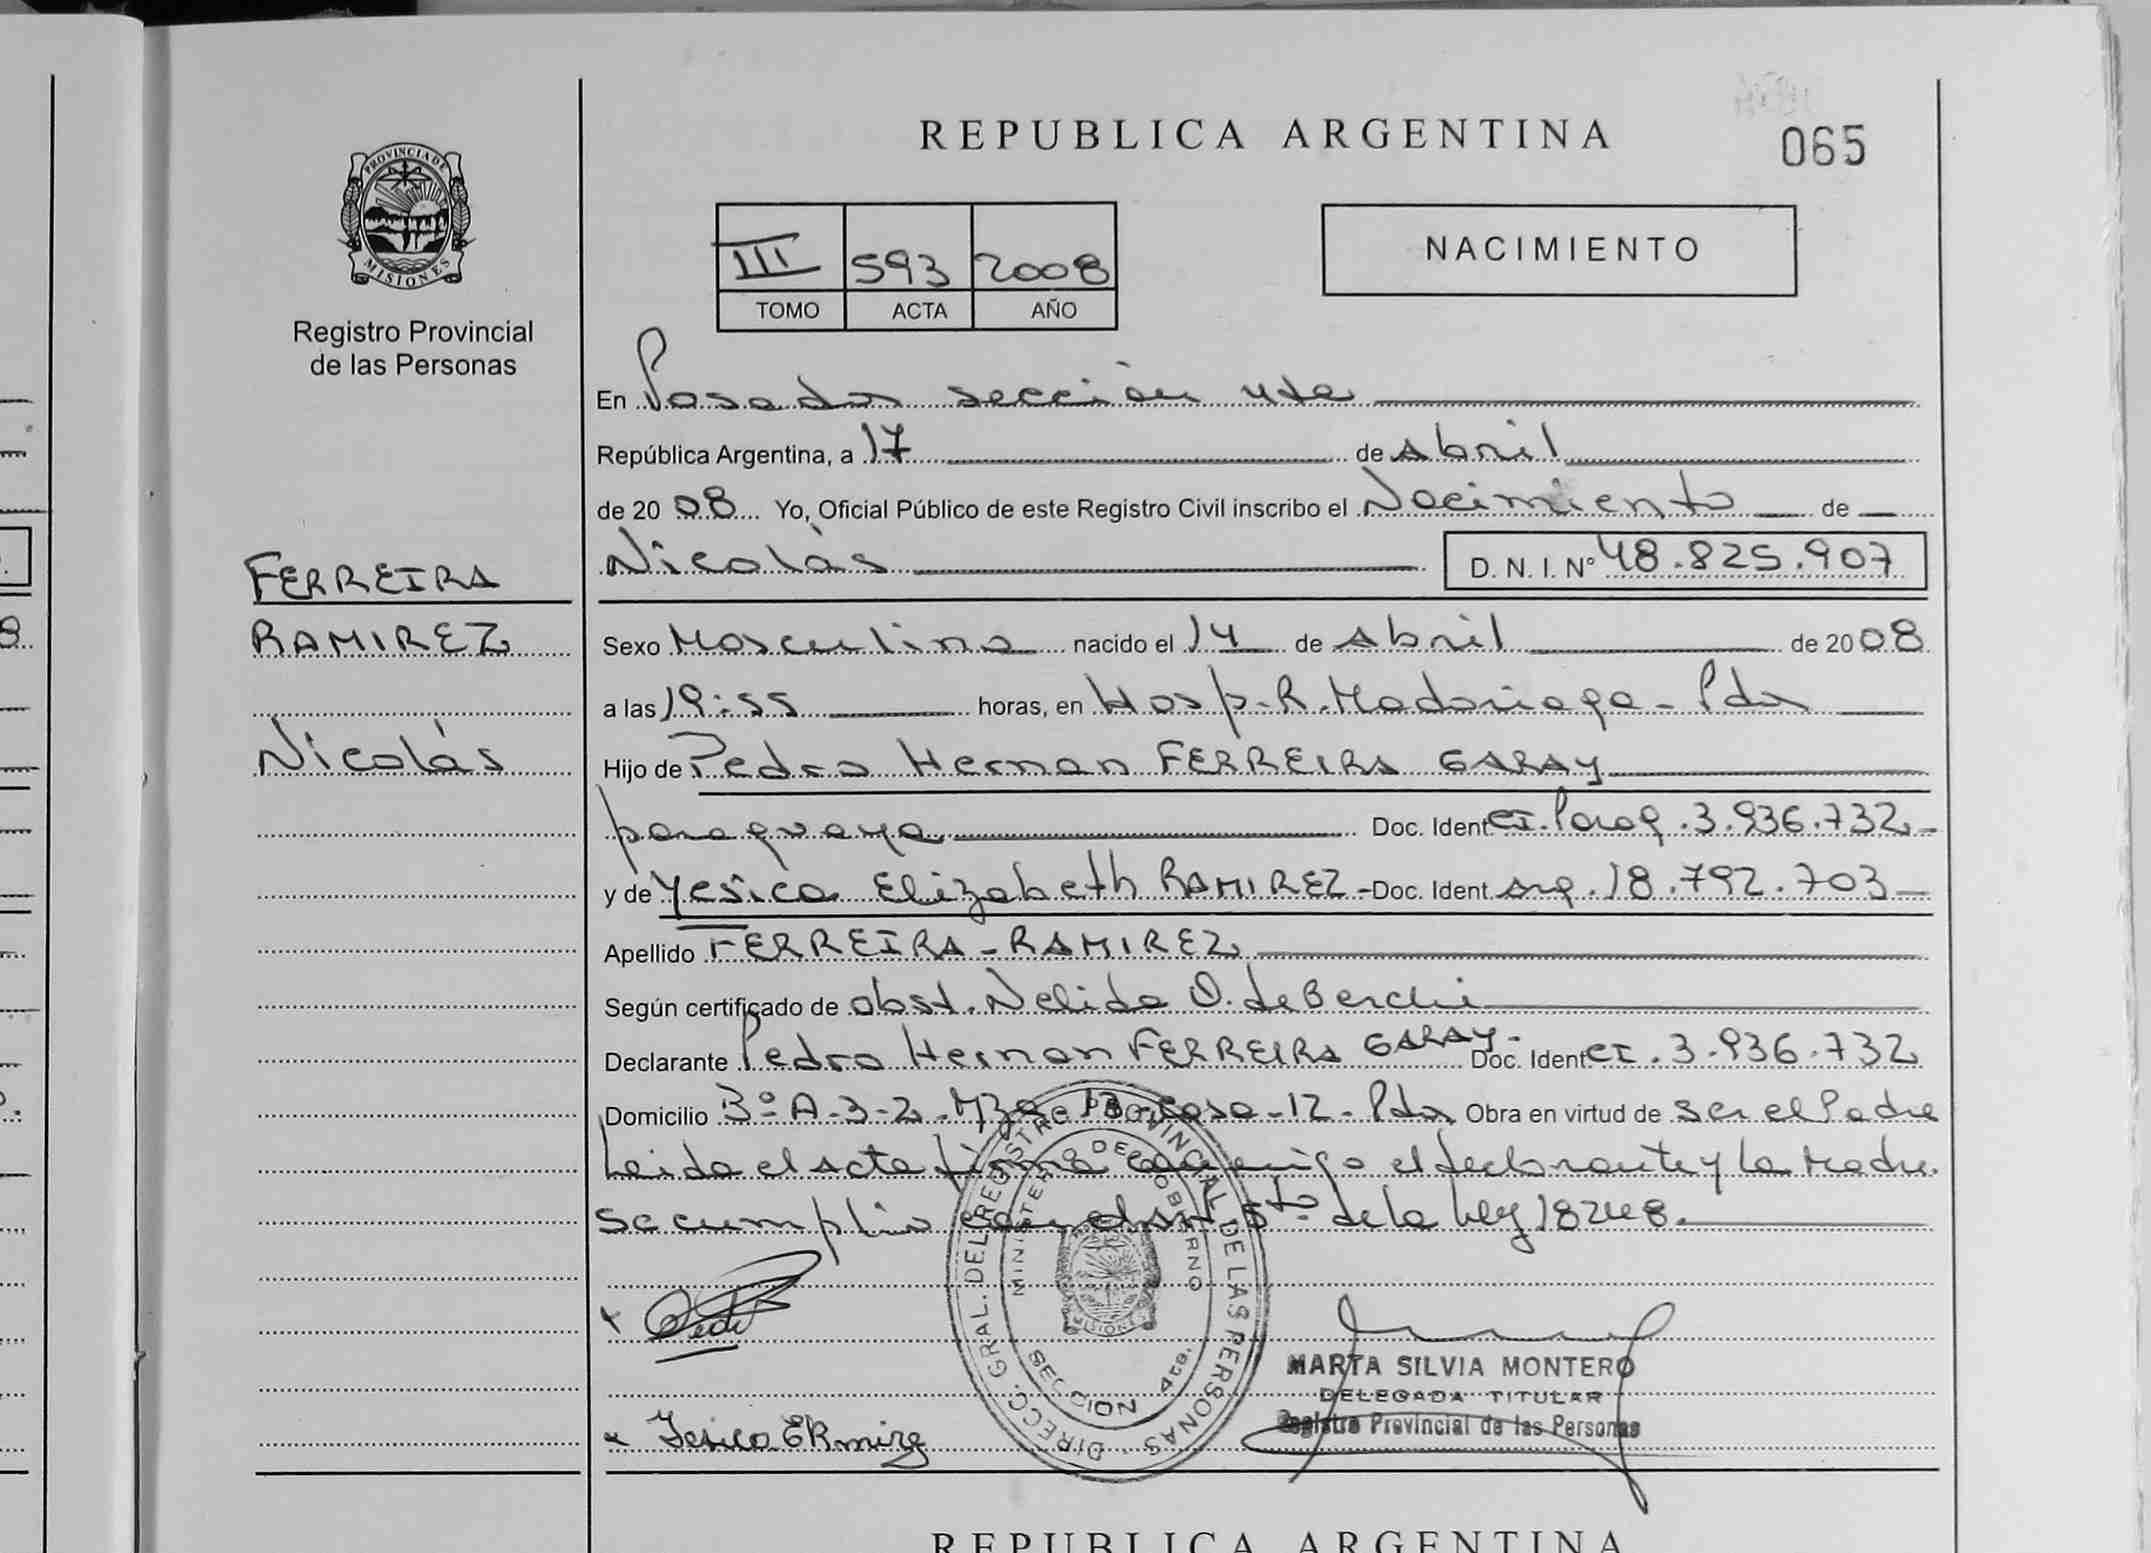 REPUBLICA ARGENTINA
065
PROVINCIA DE MISIONES
Registro Provincial
de las Personas
III 593 2008
TOMO ACTA AÑO
NACIMIENTO
En Posadas sección 4ta
República Argentina, a 17 de Abril
de 20 08 Yo, Oficial Público de este Registro Civil inscribo el Nacimiento de
Nicolás D.N.I. Nº 48.825.907
FERREIRA
RAMIREZ
Nicolás
Sexo Masculino nacido el 14 de Abril de 20 08
a las 19:55 horas, en Hosp. R. Madariaga - Pdas
Hijo de Pedro Hernan FERREIRA GARAY
paraguaya Doc. Ident CI. Parag. 3.936.732
y de Yesica Elizabeth RAMIREZ - Doc. Ident Arg. 18.792.703
Apellido FERREIRA - RAMIREZ
Según certificado de obst. Nelida O. de Berchi
Declarante Pedro Hernan FERREIRA GARAY - Doc. Ident CI. 3.936.732
Domicilio Bº A-3-2 - Casa - 12 - Pdas Obra en virtud de ser el Padre
Leida el acta firma conmigo el declarante y la Madre.
se cumplio con el art 5to de la Ley 18248.
DIRECC. GRAL. DEL REGISTRO PROVINCIAL DE LAS PERSONAS
MINISTERIO DE GOBIERNO
SECCION 4ta.
MISIONES
MARTA SILVIA MONTERO
DELEGADA TITULAR
Registro Provincial de las Personas
x
x Yesica E Rmirez
REPUBLICA ARGENTINA